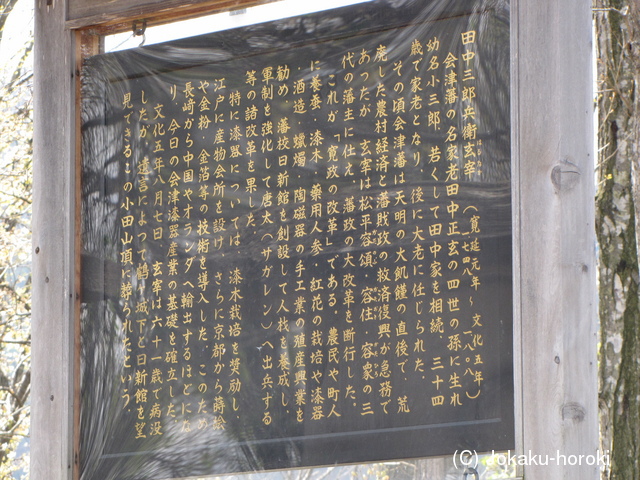 田中三郎兵衛玄宰（寛延元年～文化五年）
はるなか
一七四八　一八〇八
会津藩の名家老田中正玄の四世の孫に生れ
幼名小三郎、若くして田中家を相続、三十四
歳で家老となり、後に大老に任じられた。
その頃会津藩は天明の大飢饉の直後で、荒
廃した農村経済と藩財政の救済復興が急務で
あったが、玄宰は松平容頌、容住、容衆の三
代の藩主に仕え、藩政の大改革を断行した。
これが「寛政の改革」である。農民や町人
に養蚕、漆木、薬用人参、紅花の栽培や漆器
、酒造、蠟場、陶磁器の手工業の殖産興業を
勧め、藩校日新館を創設して人材を養成し、
軍制を強化して唐太（サガレン）へ出兵する
等の諸改革を果した。
特に漆器については、漆木栽培を奨励し、
江戸に産物会所を設け、さらに京都から蒔絵
や金粉、金箔等の技術を導入した。このため
長崎から中国やオランダへ輸出するほどにな
り、今日の会津漆器産業の基礎を確立した。
文化五年八月七日、玄宰は六十一歳で病没
したが、遺言によって鶴ヶ城下と日新館を望
見できるこの小田山頂に葬られたという。
(C) Jokaku-horoki